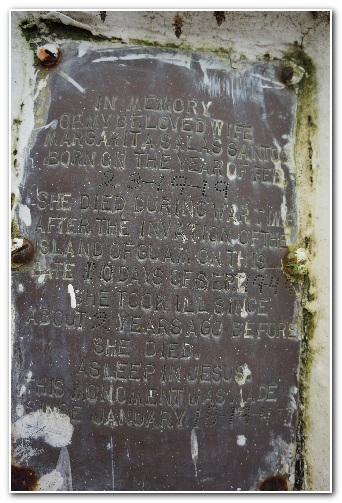 IN MEMORY
OF MY BELOVED WIFE
MARGARITA SALAS SANTOS
BORN ON THE YEAR OF FEB
23-1919
SHE DIED DURING WAR TIME
AFTER THE INVATION OF THE
ISLAND OF GUAM ON THIS
DATE 10 DAYS OF SEPT 1944
SHE TOOK ILL SINCE
ABOUT 2 YEARS AGO BEFORE
SHE DIED.
ASLEEP IN JESUS
THIS MONUMENT WAS MADE
JANUARY